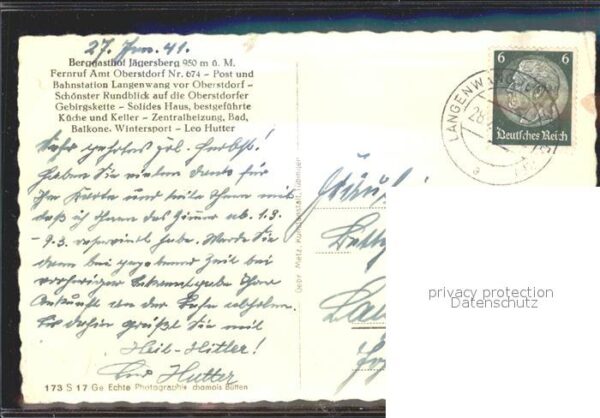 27. Jan. 41.
Berggasthof Jägersberg 950 m ü. M.
Fernruf Amt Oberstdorf Nr. 674 – Post und
Bahnstation Langenwang vor Oberstdorf –
Schönster Rundblick auf die Oberstdorfer
Gebirgskette – Solides Haus, bestgeführte
Küche und Keller – Zentralheizung, Bad,
Balkone. Wintersport – Leo Hutter
Sehr geehrtes Frl. Herbst!
Haben Sie vielen Dank für
Ihre Karte und teile Ihnen mit
daß ich Ihnen das Zimmer ab. 1.3.
- 9.3. reserviert habe. Werde Sie
dann bei gegebener Zeit bei
vorheriger Bekanntgabe Ihrer
Ankunft an der Bahn abholen.
Bis dahin grüßt Sie mit
Heil-Hitler!
Leo Hutter
173 S 17 Ge Echte Photographie chamois Bütten
Gebr. Metz, Kunstanstalt, Tübingen
6 6
Deutsches Reich
LANGENWANG
28.
a
Fräul
privacy protection
Datenschutz